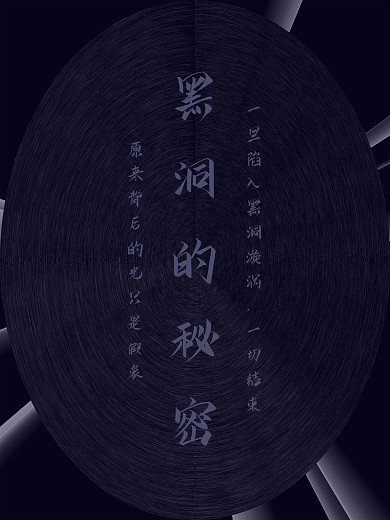 一旦陷入黑洞漩涡.一切结束
黑洞的秘密
原来背后的光只是假象